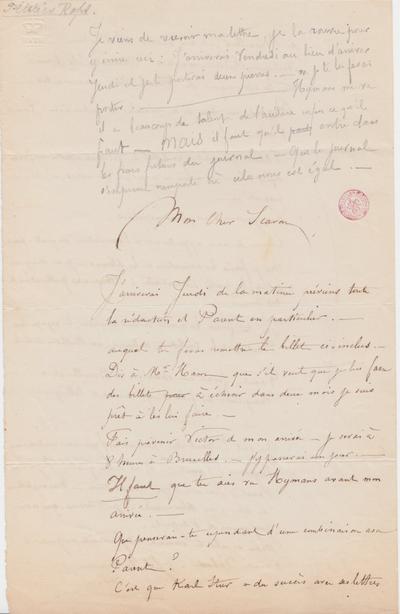 Félicien Rops.
Je viens de rouvrir ma lettre, je la rouvre pour
J'arriverai Vendredi au lieu d'arriver
Jeudi et je porterai deux pierres — je te les ferai
porter. — Hymans me va
il a beaucoup de talent de l'audace ce qu'il
faut — mais il faut qu'il entre dans
les frais futurs du journal — Que le journal
s'imprime n'importe où cela nous est égal. —
Mon Cher Scaron,
J'arriverai Jeudi de la matinée préviens toute
la rédaction et Parent en particulier. —
auquel tu feras remettre le billet ci-inclus. —
Dis à Mr Hamm que s'il veut que je lui fasse
des billets pour à échéoir dans deux mois je suis
prêt à les lui faire. —
Fais prévenir Victor de mon arrivée — je serai à
8 heures à Bruxelles. — J'y passerai un jour. —
Il faut que tu aies vu Hymans avant mon
arrivée. —
Que penserais-tu cependant d'une combinaison avec
Parent?
C'est que Karl Stur a du succès avec ses lettres